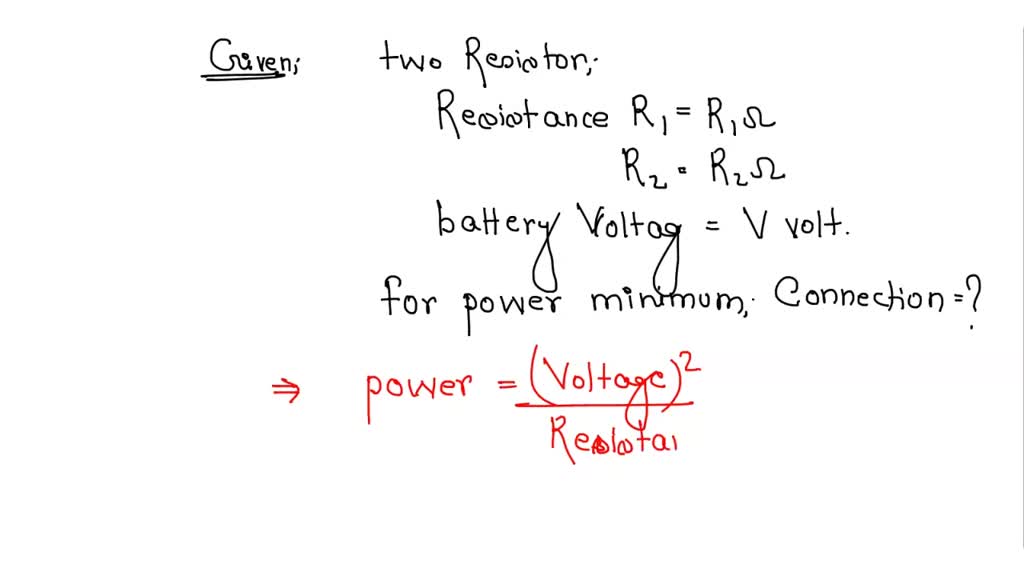 Given; two Resistor;
Resistance R₁ = R₁Ω
R₂ = R₂Ω
battery Voltag = V volt.
for power minimum, Connection = ?
⇒ power = (Voltage)²
Resistan